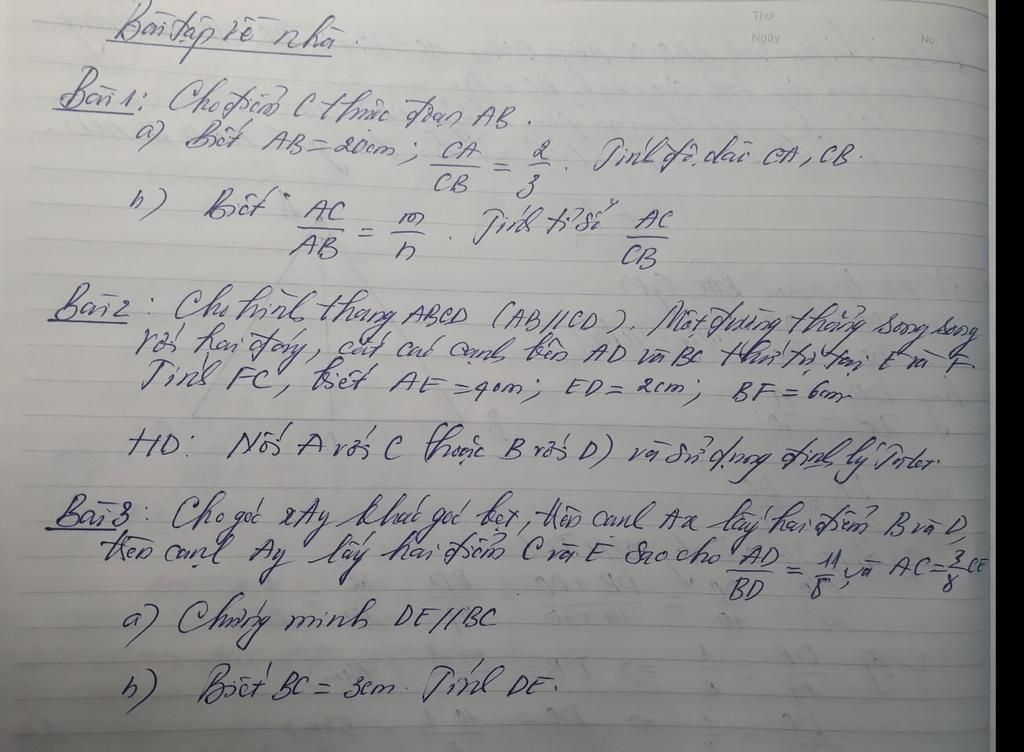 Thứ
Ngày
No.
Bài tập về nhà.
Bài 1: Cho điểm C thuộc đoạn AB.
a) Biết AB = 20cm; CA/CB = 2/3. Tính độ dài CA, CB.
b) Biết AC/AB = m/n. Tính tỉ số AC/CB
Bài 2: Cho hình thang ABCD (AB//CD). Một đường thẳng song song
với hai đáy, cắt các cạnh bên AD và BC thứ tự tại E và F
Tính FC, biết AE = 4cm; ED = 2cm; BF = 6cm
HD: Nối A với C (hoặc B với D) và sử dụng định lý Talet.
Bài 3: Cho góc xAy khác góc bẹt, trên cạnh Ax lấy hai điểm B và D,
trên cạnh Ay lấy hai điểm C và E sao cho AD/BD = 11/8 và AC = 3/8 CE
a) Chứng minh DE//BC
b) Biết BC = 3cm. Tính DE.